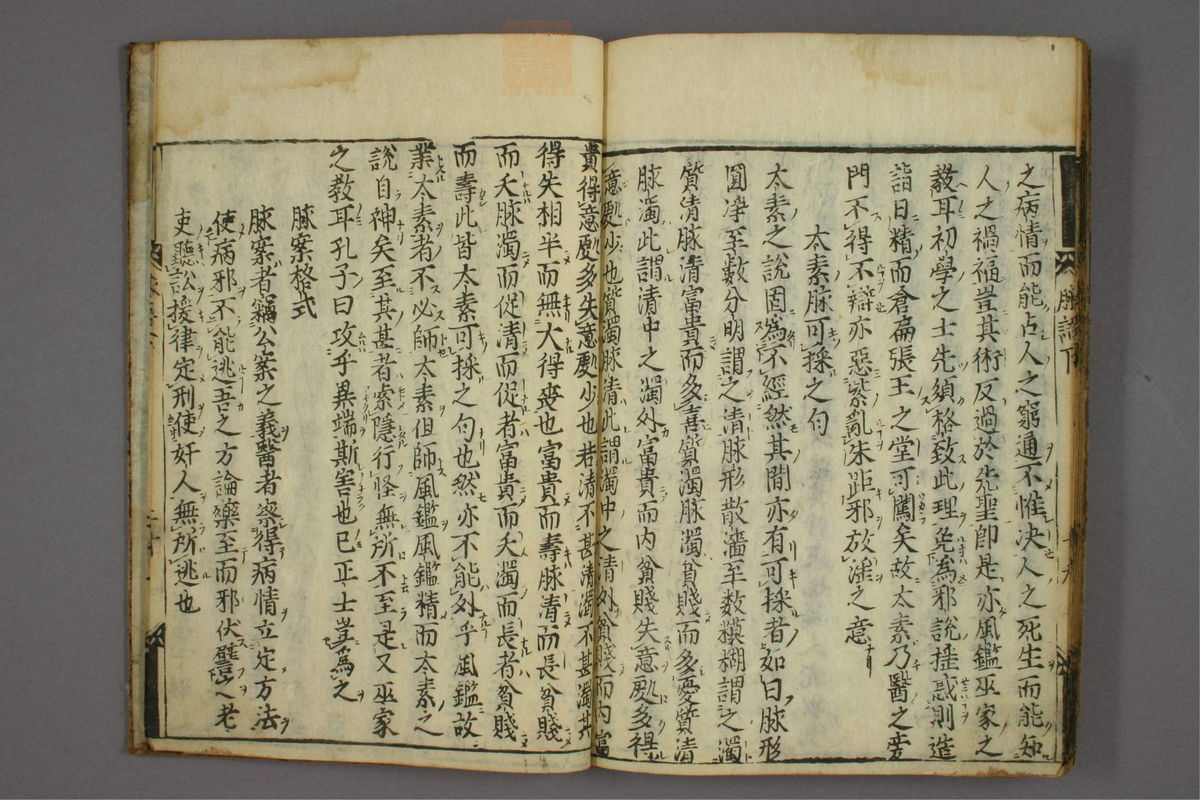 之病情而能占人之窮通不惟決人之死生而能知
人之禍福豈其術反過於先聖即是亦風鑑巫家之
教耳初學之士先須格致此理免為邪說搖惑則造
詣日精而倉扁張王之堂可闖矣故太素乃醫之旁
門不得不辯亦惡紫亂朱距邪放淫之意
太素脉可採之句
太素之說固為不經然其間亦有可採者如曰脉形
圓淨至數分明謂之清脉形散濇至数糢糊謂之濁
質清脉清富貴而多喜質濁脉濁貧賤而多憂質清
脉濁此謂清中之濁外富貴而內貧賤失意處多得
意處少也質濁脉清此謂濁中之清外貧賤而內富
貴得意處多失意處少也若清不甚清濁不甚濁其
得失相半而無大得喪也富貴而壽脉清而長貧賤
而夭脉濁而促清而促者富貴而夭濁而長者貧賤
而壽此皆太素可採之句也然亦不能外乎風鑑故
業太素者不必師太素但師風鑑風鑑精而太素之
說自神矣至其甚者索隱行怪無所不至是又巫家
之教耳孔子曰攻乎異端斯害也已正士豈為之
脉案格式
脉案者竊公案之義醫者察得病情立定方法
使病邪不能逃吾之方論藥至而邪伏譬之老
吏聽訟援律定刑使奸人無所逃也
脉語下